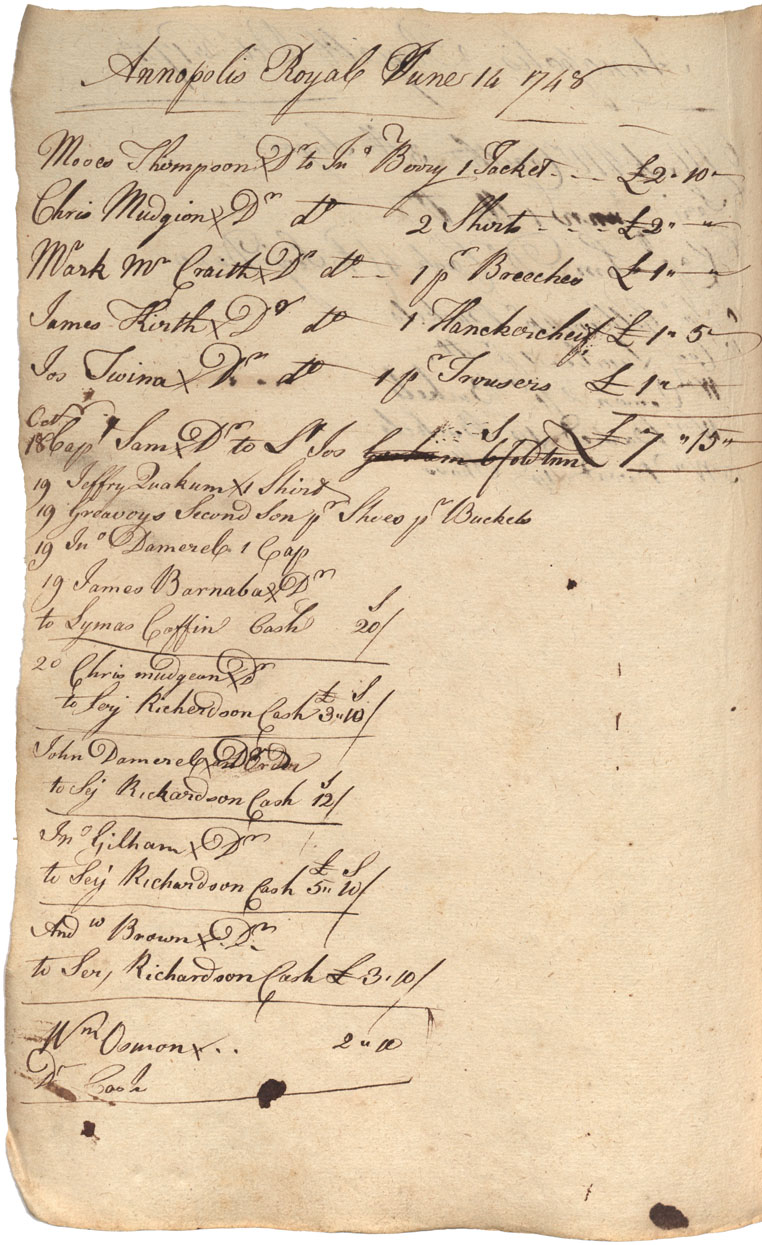 Annopolis Royal June 14 1748
Moses Thompson Dr to Jno Berry 1 Jacket £2" 10"
Chris Mudgion Dr do 2 Shirts £2" "
Mark Mc Craith Dr do 1 pr Breeches £1" "
James Kirth Dr do 1 Hanckerchef £1" 5"
Jos Twina Dr do 1 pr Trousers £1" "
£7 " 15 "
Octr
18 Capt Sam Dr to Sr Jos
19 Jeffry Quakum 1 Shirt
19 Greavoys Second Son pr Shoes pr Buckels
19 Jno Damerel 1 Cap
19 James Barnaba Dr
to Symas Coffin Cash S 20/
20 Chris mudgean Dr
to Serj Richerdson Cash £3" S10/
John Damerel Dr
to Sej Rickardson Cash S 12/
Jno Gilham Dr
to Seij Richardson Cash £5" S10/
Andw Brown Dr
to Ser, Richardson Cash £3" 10/
Wm Osmon 2 " 10
Dr Cash